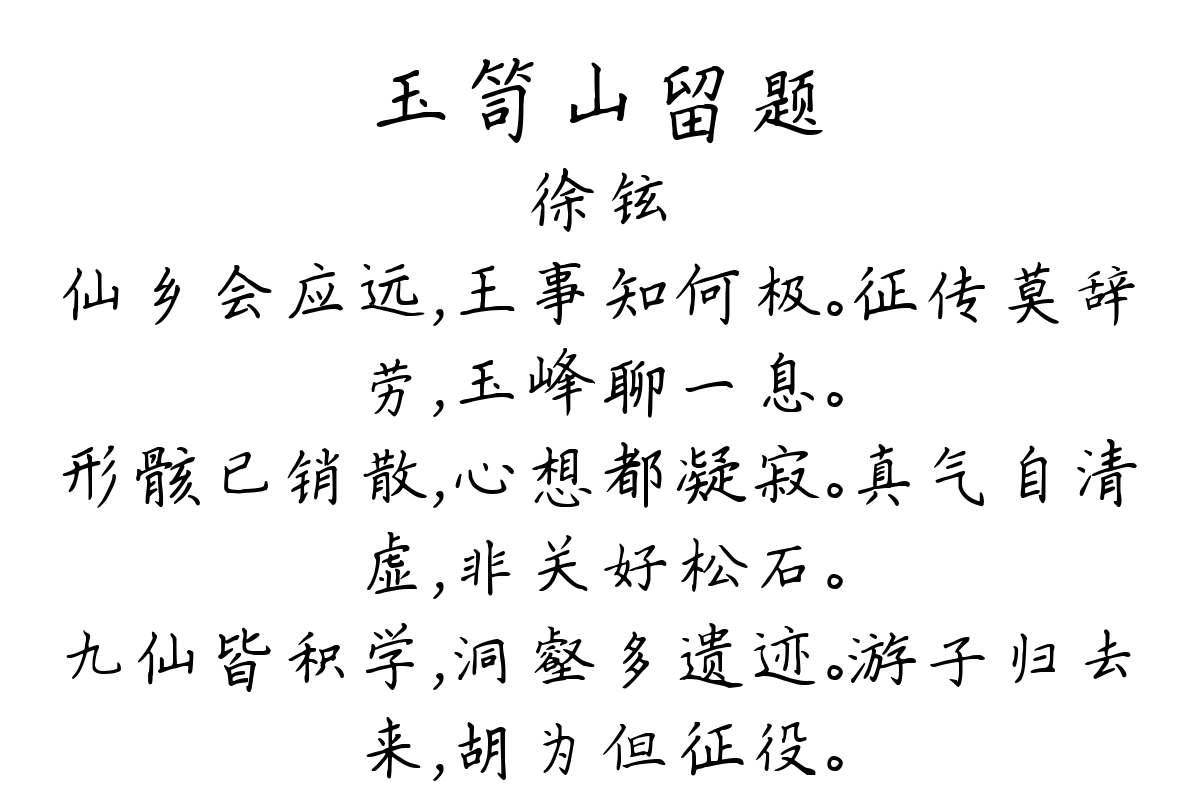 玉笥山留题
徐铉
仙乡会应远,王事知何极。征传莫辞
劳,玉峰聊一息。
形骸已销散,心想都凝寂。真气自清
虚,非关好松石。
九仙皆积学,洞壑多遗迹。游子归去
来,胡为但征役。